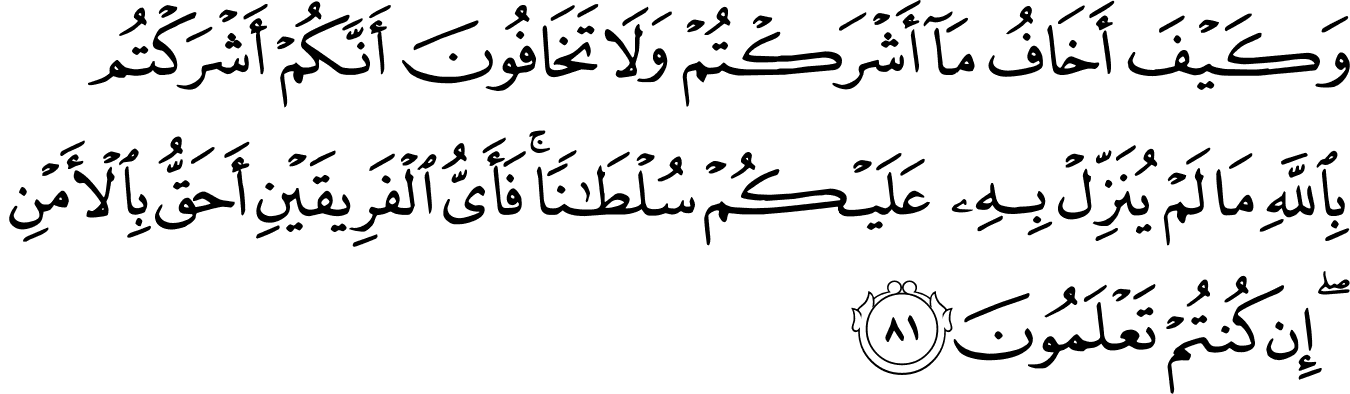 وَكَيْفَ أَخَافُ مَآ أَشْرَكْتُمْ وَلَا تَخَافُونَ أَنَّكُمْ أَشْرَكْتُم
بِٱللَّهِ مَا لَمْ يُنَزِّلْ بِهِۦ عَلَيْكُمْ سُلْطَٰنًا ۚ فَأَىُّ ٱلْفَرِيقَيْنِ أَحَقُّ بِٱلْأَمْنِ
ۖ إِن كُنتُمْ تَعْلَمُونَ ٨١